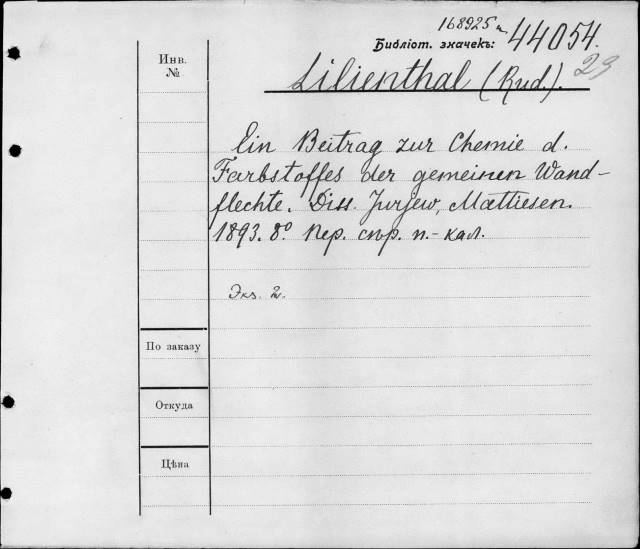 168925
Библіот. значекъ: 44054.
23
Инв.
№
Lilienthal (Rud.).
Ein Beitrag zur Chemie d.
Farbstoffes der gemeinen Wand-
flechte. Diss. Jurjew, Mattiesen.
1893. 8º Пер. спр. п.-кал.
Экз. 2.
По заказу
Откуда
Цѣна